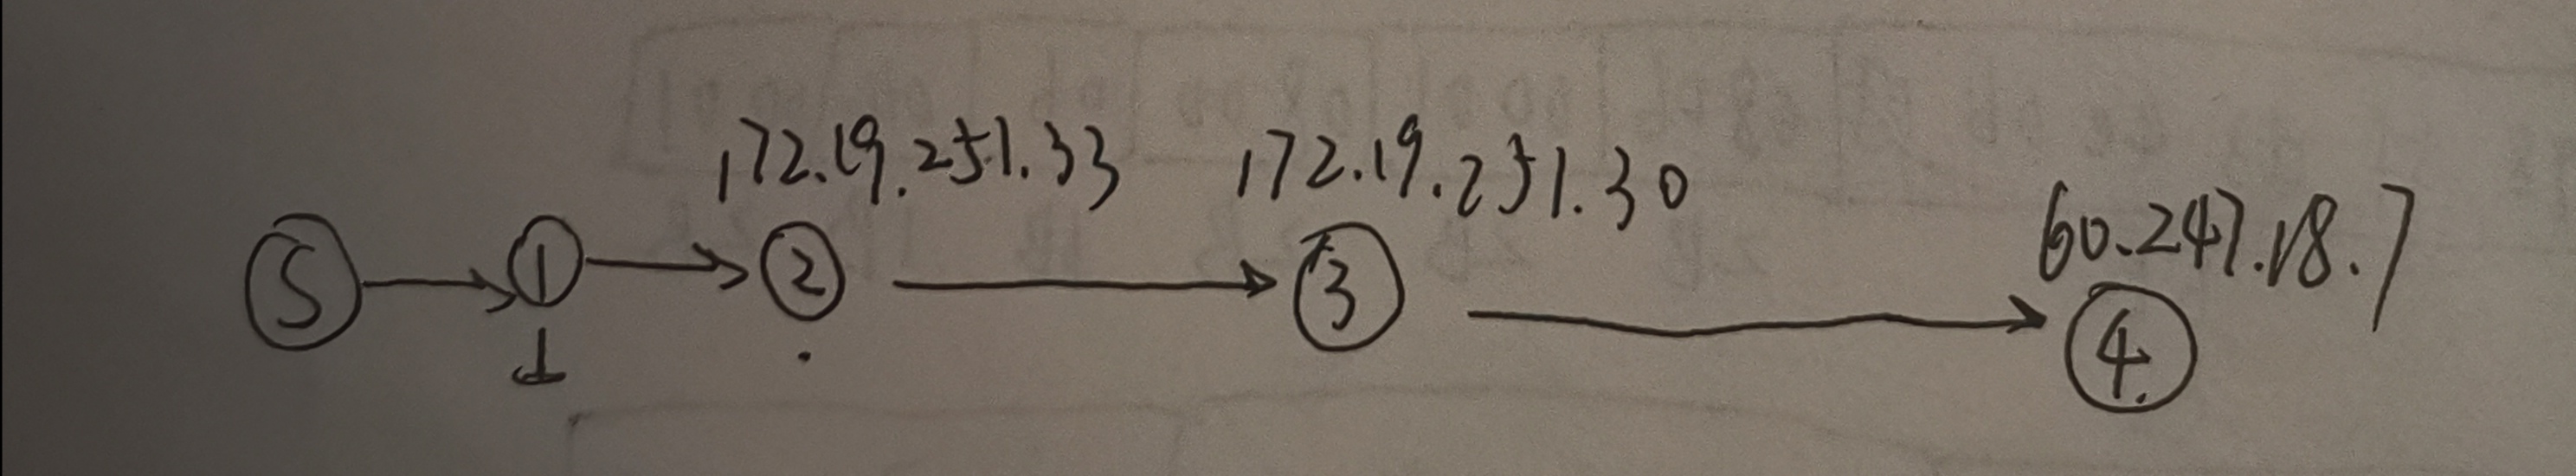 172.19.251.33 172.19.251.30
60.247.18.7
S 1 2 3 4
1